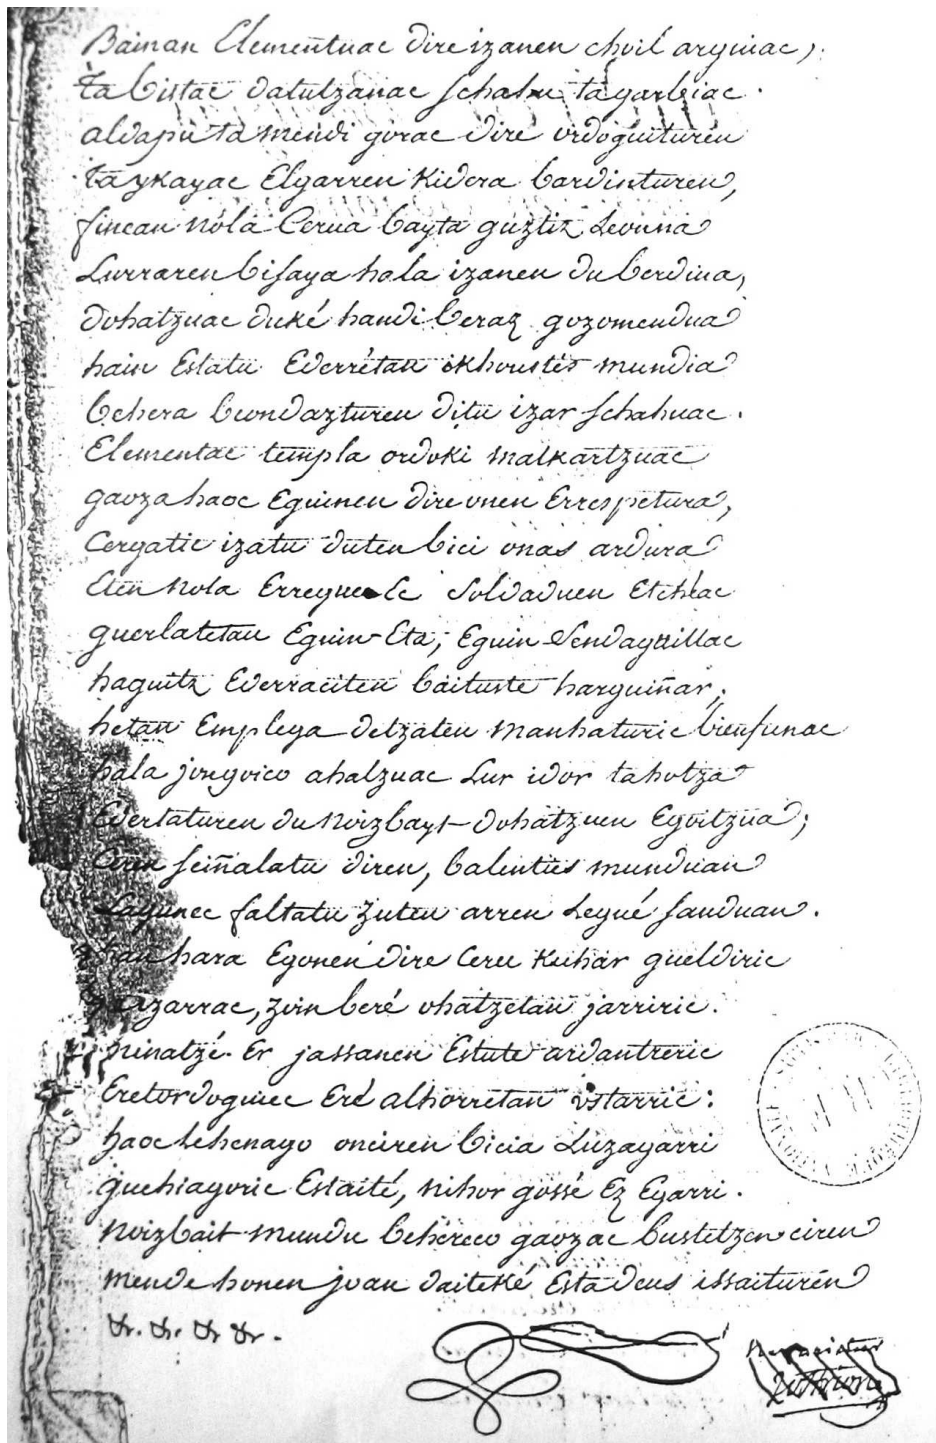 Bainan Elementuac dire izanen choil arguiac,
ta bistac datutzanac schahu ta garbiac.
aldapa ta mendi gorac dire ordoguituren
ta ykayac Elgarren Kidera bardinturen,
finean nola Cerua bayta guztiz Leouna
Lurraren bisaya hala izanen du berdina,
dohatzuac duké handi beraz gozomendua
hain Estatu Ederrétan ikhoustés mundia
behera beondazturen ditu izar schahuac.
Elementac templa ordoki malkartzuac
gaoza haoc Eguinen dire onen Errespetura,
Cergatic izatu duten bici onas ardura
Eten nola Erregue Le Soldaduen Etcheac
guerlatetan Eguin Eta, Eguin Sendagaillac
haguitz Ederraciten baituste harguiñar,
hetan Emplega detzaten manhaturic bienfunac
hala jongoico ahalzuac Lur idor ta hotza
Edertaturen du noizbayt dohatzuen Egoitzua;
Ceren seiñalatu diren, balenties munduan
Lagunec faltatu zuten arren Legué sanduan.
han hara Egonen dire Ceru Kuhar gueldiric
zarrac, zoin beré ohatzetan jarriric.
ninatzé Er jassanen Estute ardantreric
Eretordoguiec Eré alhorretan ostarric:
haoc Lehenago onciren bicia Luzagarri
guehiagoric Estaité, nihor gossé Ez Egarri.
noizbait mundu behéreco gaozac bustetzen ciren
mende honen joan daiteké Esta deus issaiturén